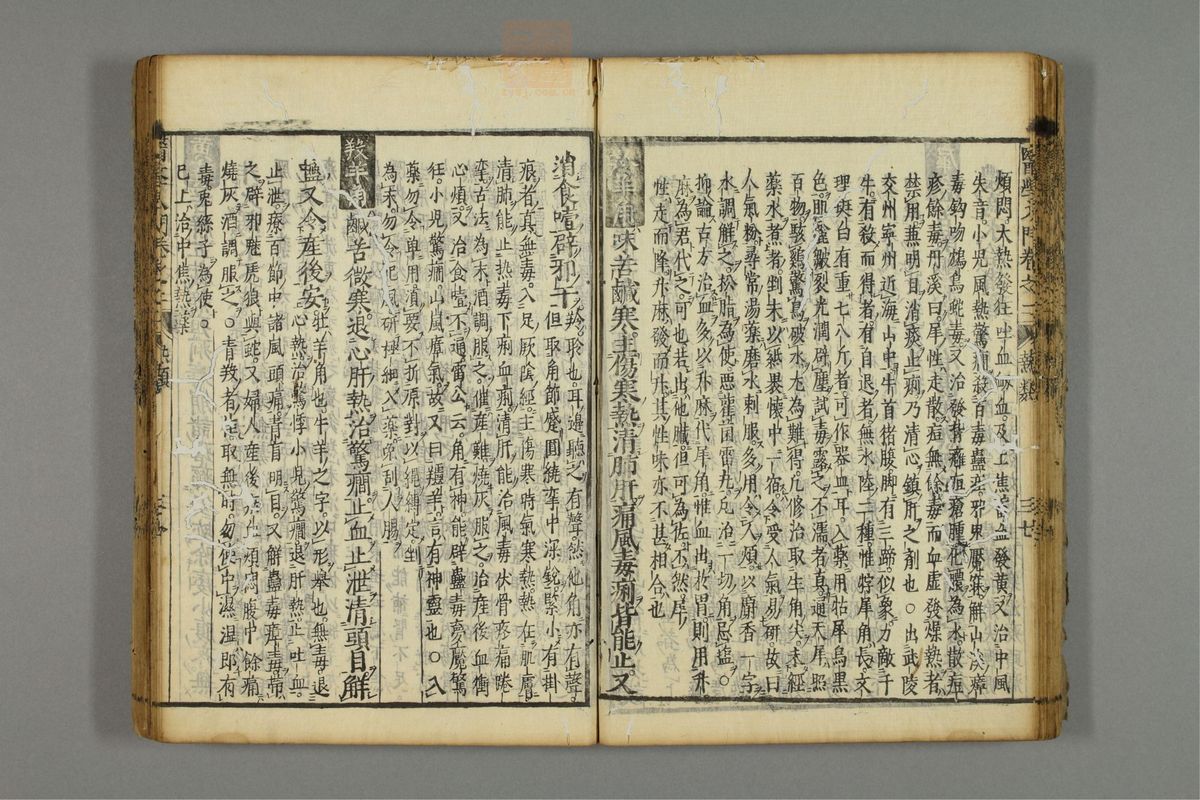 煩悶大熱發狂吐血衄血及上焦蓄血發黃又治中風
失音小兒風熱驚癇殺百毒蠱疰邪鬼魘寐解山嵐瘴
毒鈎吻鴆鳥蛇毒又治發背癰疽瘡腫化膿為水散痘
疹餘毒丹溪曰犀性走散痘無餘毒而血虛發燥熱者
禁用兼明目消痰止痢乃清心鎮肝之劑也○出武陵
交州寧州近海山中牛首猪腹脚有三蹄似象力敵千
牛有殺而得者有自退者無水陸二種惟牸犀角長文
理斑白有重七八斤者可作器皿耳入藥用牯犀烏黑
色肌麄皺裂光潤辟塵試毒露之不濡者真通天犀照
百物駭鷄驚鳥破水尤為難得凡修治取生角尖未經
藥水煮者剉末以紙裹懷中一宿令受人氣易研故曰
人氣粉尋常湯藥磨水刺服多用令人煩以麝香一字
水調解之松脂為使惡雚菌雷丸治一切角忌塩○
抑論古方治血多以升麻代犀角惟血出於胃則用升
麻為君代之可也若出他臟但可為佐不然犀
性走而降升麻發而升其性味亦不甚相合也
羚羊角味苦鹹寒主傷寒熱清肺肝痛風毒痢皆能止又
消食噎辟邪干羚聆也耳邊聽之有聲然他角亦有聲
但取角節蹙圓繞彎中深銳緊小有掛
痕者真無毒入足厥陰經主傷寒時氣寒熱熱在肌膚
清肺能止熱毒下痢血痢清肝能治風毒伏骨疼痛踡
攣古法為末酒調服之催產難燒灰服之治產後血衝
心煩又治食噎不通雷公云角有神能辟蠱毒夢魘驚
狂小兒驚癇山嵐瘴氣故又曰羚羊言有神靈也○入
藥勿令單用須要不拆原對以繩縛定剉
為末勿令犯風研極細入藥免刮人腸
羖羊角鹹苦微寒退心肝熱治驚癇止血止泄清頭目解
蠱又令產後安牡羊角也牛羊之字以形舉也無毒退
心熱治驚悸小兒驚癇退肝熱止吐血
止泄療百節中諸風頭痛青盲明目又解蠱毒瘴毒帶
之辟邪魅虎狼與蛇又婦人產後寒止煩悶腹中餘痛
燒灰酒調服之○青羖者佳取無時勿使中濕濕即有
毒兔絲子為使
已上治中焦熱藥